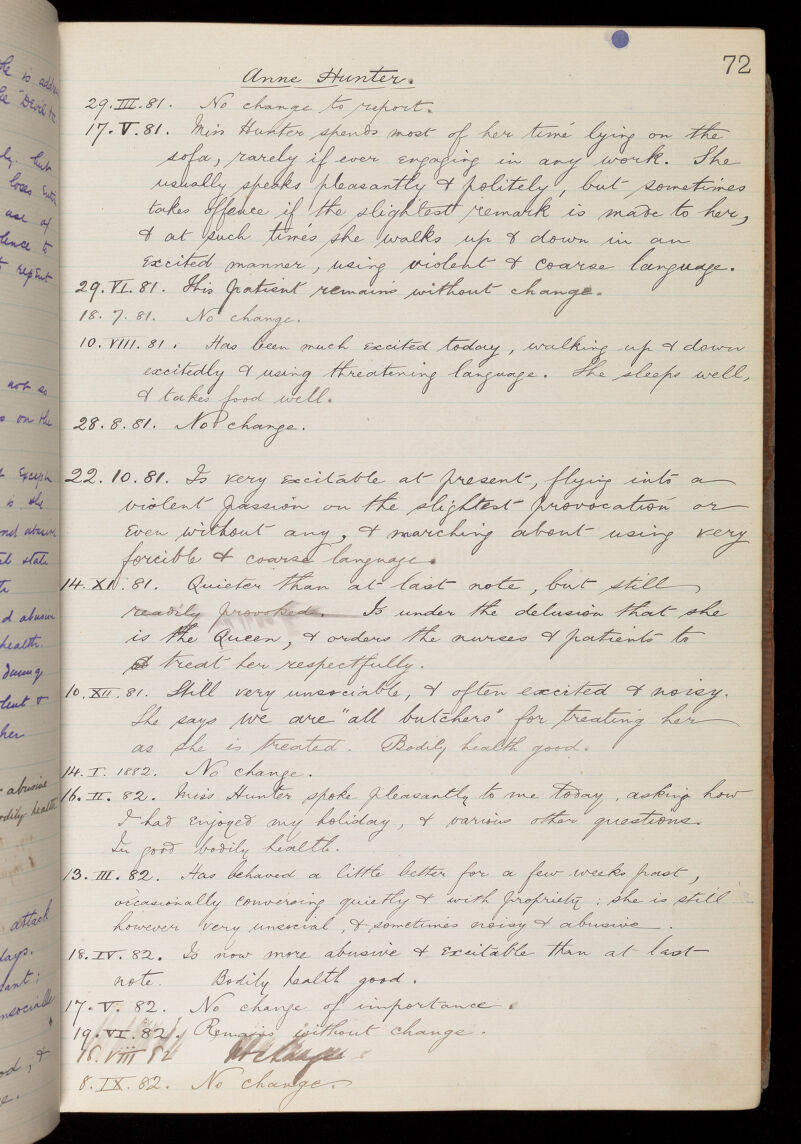 he is addre
he "Devil &c
ly. but
loses
use of
lence to
repent
not so
s on the
Except
is the
and abusive
state
d abusive
health.
during
lent &
her
abusive
odily health
attack
days.
sant;
nsociable
od, &
72
Anne Hunter.
29.III.81. No change to report.
17.V.81. Miss Hunter spends most of her time lying on the
sofa, rarely if ever engaging in any work. She
usually speaks pleasantly & politely, but sometimes
takes offence if the slightest remark is made to her,
& at such times she walks up & down in an
excited manner, using violent & coarse language.
29.VI.81. This patient remains without change.
18.7.81. No change.
10.VIII.81. Has been much excited today, walking up & down
excitedly & using threatening language. She sleeps well,
& takes food well.
28.8.81. No change.
22.10.81. Is very excitable at present, flying into a
violent passion on the slightest provocation or
even without any, & marching about using very
forcible & coarse language.
14.XI.81. Quieter than at last note, but still
readily provoked. Is under the delusion that she
is the Queen, & orders the nurses & patients to
treat her respectfully.
10.XII.81. Still very unsociable, & often excited & noisy.
She says we are "all butchers" for treating her
as she is treated. Bodily health good.
14.I.1882. No change.
16.II.82. Miss Hunter spoke pleasantly to me today, asking how
I had enjoyed my holiday, & various other questions.
In good bodily health.
13.III.82. Has behaved a little better for a few weeks past,
occasionally conversing quietly & with propriety: she is still
however very unsocial, & sometimes noisy & abusive.
18.IV.82. Is now more abusive & excitable than at last
note. Bodily health good.
17.V.82. No change of importance.
19.VI.82. Remains without change.
18.VIII 82 No change.
8.IX.82. No change.